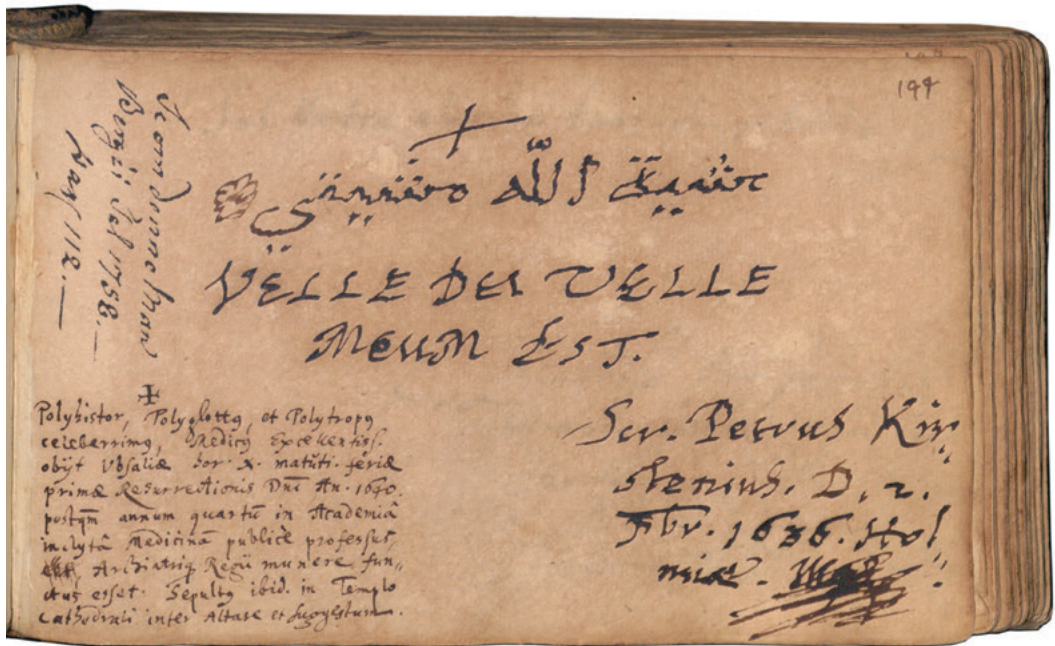 199
مشية الله مشيتي
VELLE DEI VELLE
MEUM EST.
Scr. Petrus Kir-
stenius. D. 2.
Fbr. 1636. Hol-
miæ.
Polyhistor, Polyglottꝰ, et Polytropꝰ
celeberrimꝰ, Medicꝰ Excellentiss.
obijt Vbsaliæ hor. X. matuti. feriæ
primæ Resurrectionis Dnĩ An. 1640.
postqm̃ annum quartũ in Academiâ
inclytâ Medicinã publicè professus,
Archiatriq̃ Regii munere fun-
ctus esset. Sepultꝰ ibid. in Templo
Cathedrali inter Altare et Suggestum.
1758.
pag 112.